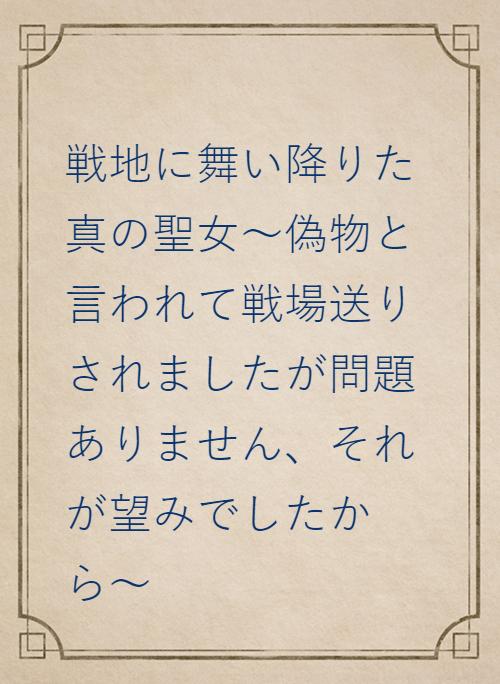 戦地に舞い降りた
真の聖女〜偽物と
言われて戦場送り
されましたが問題
ありません、それ
が望みでしたか
ら〜